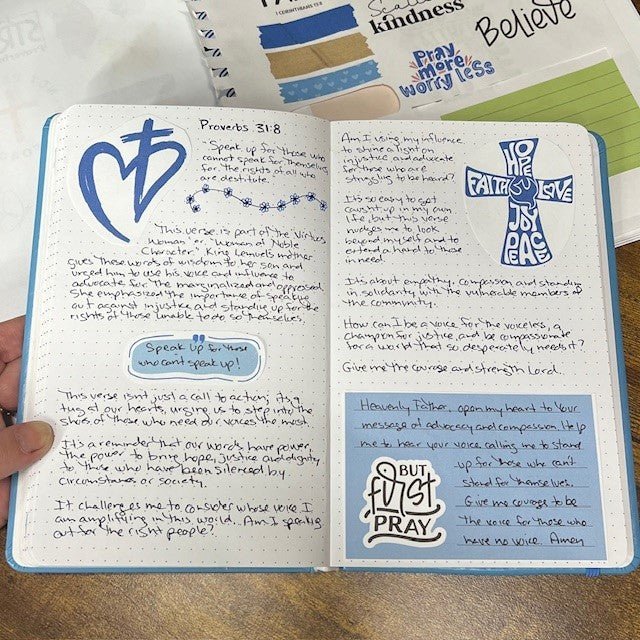 1 CORINTHIANS 13:8
kindness
Believe
Pray
more
worry less
Proverbs 31:8
"Speak up for those who
cannot speak for themselves
for the rights of all who
are destitute.
This verse is part of the "Virtuous
Woman" or "Woman of Noble
Character." King Lemuel's mother
gives these words of wisdom to her son and
urged him to use his voice and influence to
advocate for the marginalized and oppressed.
She emphasized the importance of speaking
out against injustice and standing up for the
rights of those unable to do so themselves.
Speak up for those
who can't speak up!
This verse isn't just a call to action; it's a
tug at our hearts, urging us to step into the
shoes of those who need our voices the most.
It's a reminder that our words have power,
the power to bring hope, justice and dignity
to those who have been silenced by
circumstance or society.
It challenges me to consider whose voice I
am amplifying in this world. Am I speaking
out for the right people?
Am I using my influence
to shine a light on
injustice and advocate
for those who are
struggling to be heard?
It's so easy to get
caught up in my own
life, but this verse
nudges me to look
beyond myself and to
extend a hand to those
in need.
It's about empathy, compassion and standing
in solidarity with the vulnerable members of
the community.
How can I be a voice for the voiceless, a
champion for justice, and be compassionate
for a world that so desperately needs it?
Give me the courage and strength Lord.
HOPE
FAITH LOVE
JOY
PEACE
Heavenly Father, open my heart to Your
message of advocacy and compassion. Help
me to hear your voice calling me to stand
up for those who can't
stand for themselves.
Give me courage to be
the voice for those who
have no voice. Amen
BUT
first
PRAY